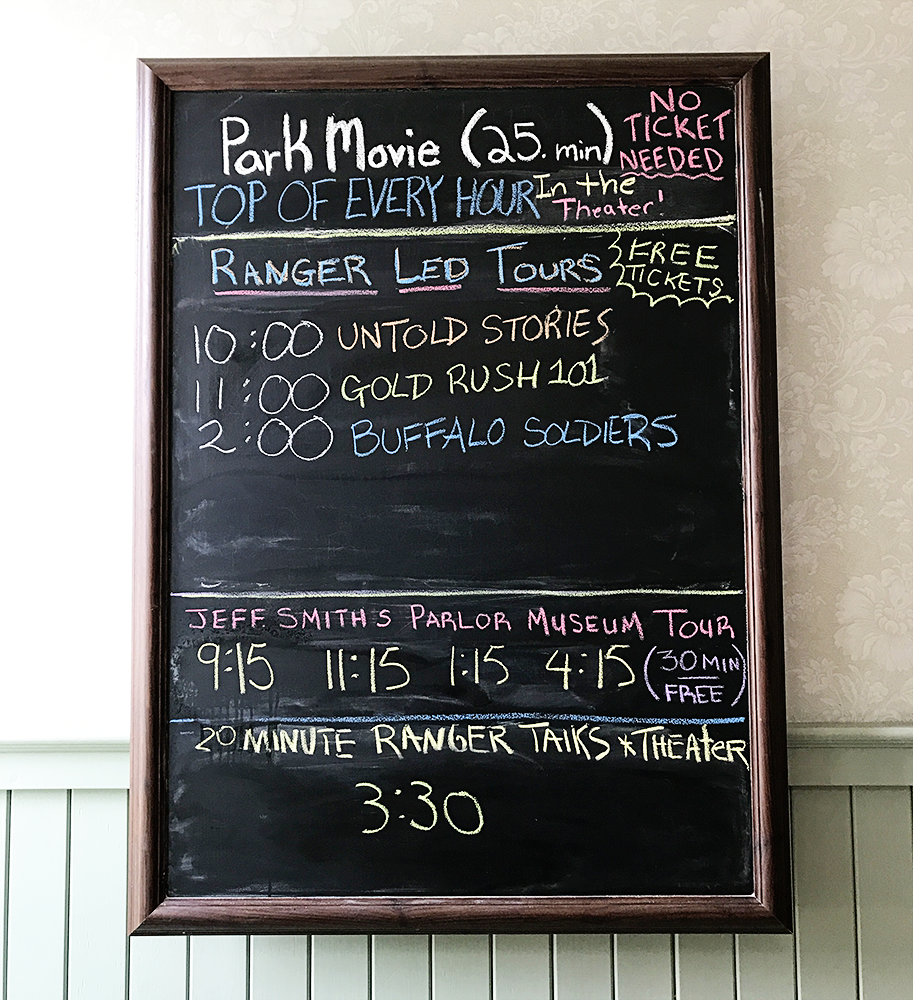 Park Movie (25. min) NO TICKET NEEDED
TOP OF EVERY HOUR In the Theater!
RANGER LED TOURS FREE TICKETS
10:00 UNTOLD STORIES
11:00 GOLD RUSH 101
2:00 BUFFALO SOLDIERS
JEFF SMITHS PARLOR MUSEUM TOUR
9:15 11:15 1:15 4:15 (30 MIN FREE)
20 MINUTE RANGER TAlKS *THEAtER
3:30